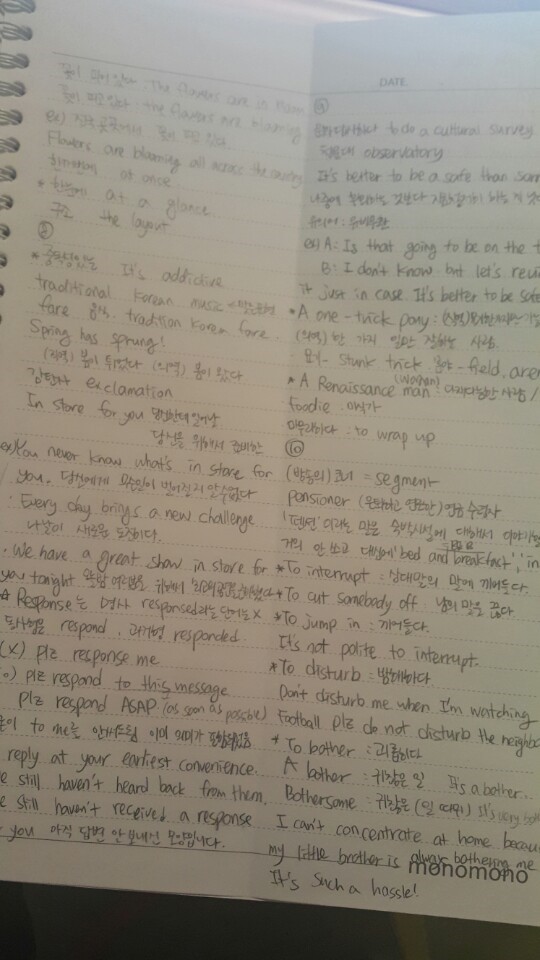 꽃이 피어 있다. The flowers are in bloom
꽃이 피고 있다 : the flowers are blooming
ex) 전국 곳곳에서 꽃이 피고 있다.
Flowers are blooming all across the country
한꺼번에 at once
* 한눈에 at a glance
구조 the layout
* 중독성있는 It's addictive
traditional korean music
fare 음식. tradition korea fare.
Spring has sprung!
(직역) 봄이 튀었다 (의역) 봄이 왔다
감탄사 exclamation
In store for you 당신한테 일어날
당신을 위해서 준비한
ex) You never know what's in store for
you. 당신에게 무슨일이 벌어질지 알수없다
Every day brings a new challenge
나날이 새로운 도전이다.
We have a great show in store for
you tonight
☆ Response는 명사 responsed라는 단어는 X
동사형은 respond, 과거형 responded.
(X) plz response me
o) plz respond to this message
plz respond ASAP (as soon as possible)
to me를 이미 의미가
reply at your earliest convenience.
e still haven't heard back from them.
e still haven't received a response
you 아직 답변 안 보내신 모양입니다.
DATE.
⑨
to do a cultural survey
observatory
It's better to be a safe than
유의어 : 유비무환
ex) A : Is that going to be on the
B : I don't know but let's
it just in case. It's better to be safe
* A one-trick pony : (직역)
(의역) 한 가지 일만 잘하는 사람.
묘기 - stunt trick 분야 - field,
* A Renaissance man : 다재다능한 사람 /
(woman)
foodie : 미식가
마무리하다 : to wrap up
⑩
(방송의) 코너 = segment
pensioner 연금 수급자
'펜션'이라는 말은 숙박시설에 대해서
거의 안 쓰고 대신에 'bed and breakfast', 'in
* To interrupt : 상대방의 말에 끼어들다.
* To cut somebody off : 남의 말을 끊다
* To jump in : 끼어들다.
It's not polite to interrupt.
* To disturb = 방해하다.
Don't disturb me when I'm watching
Football plz do not disturb the
* To bother : 괴롭히다
A bother : 귀찮은 일 It's a bother...
Bothersome : 귀찮은 (일 따위) It's very
I can't concentrate at home
my little brother is always bothering me
It's such a hassle!
monomono